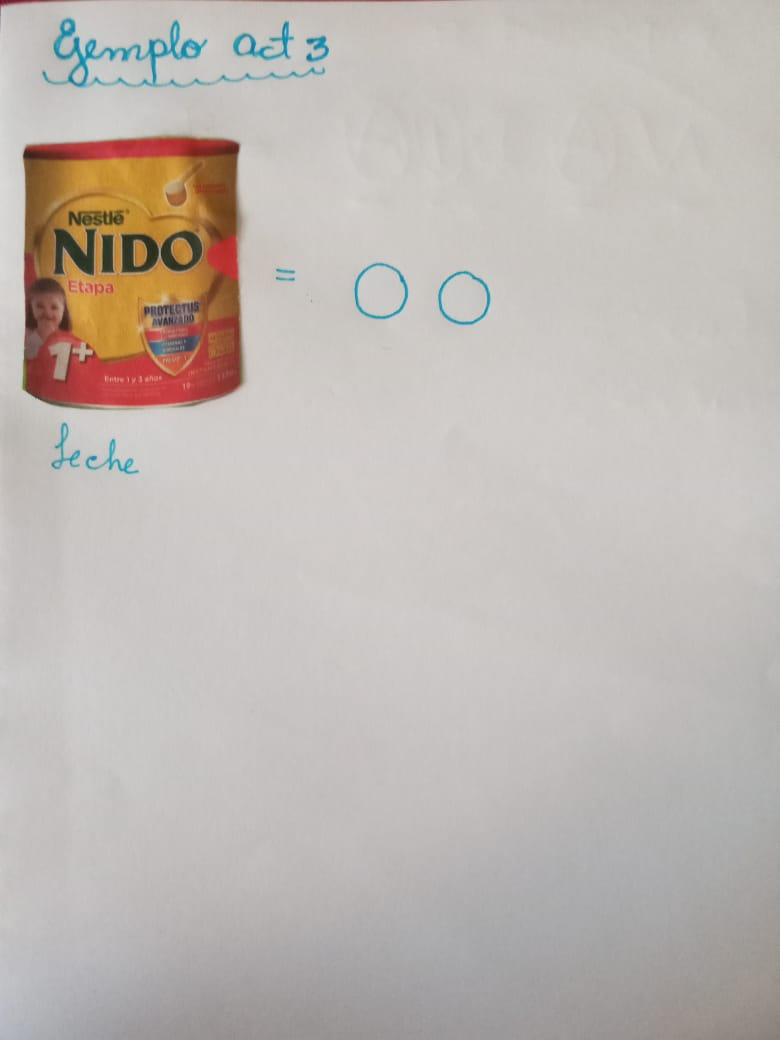 Ejemplo act 3
Nestlé
NIDO
Etapa
PROTECTUS
AVANZADO
1+
Entre 1 y 3 años
=
Leche